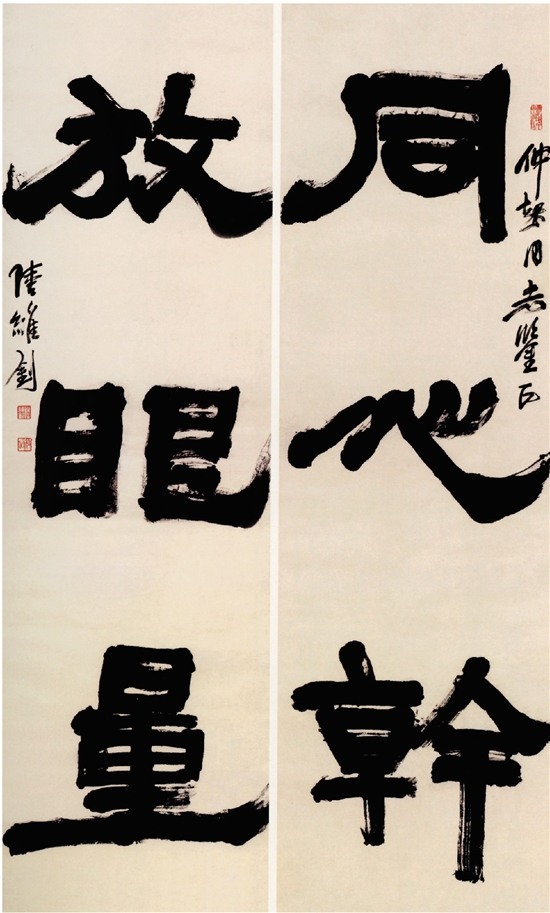 仲 同志鑒正
同心幹
放眼量
陸維釗